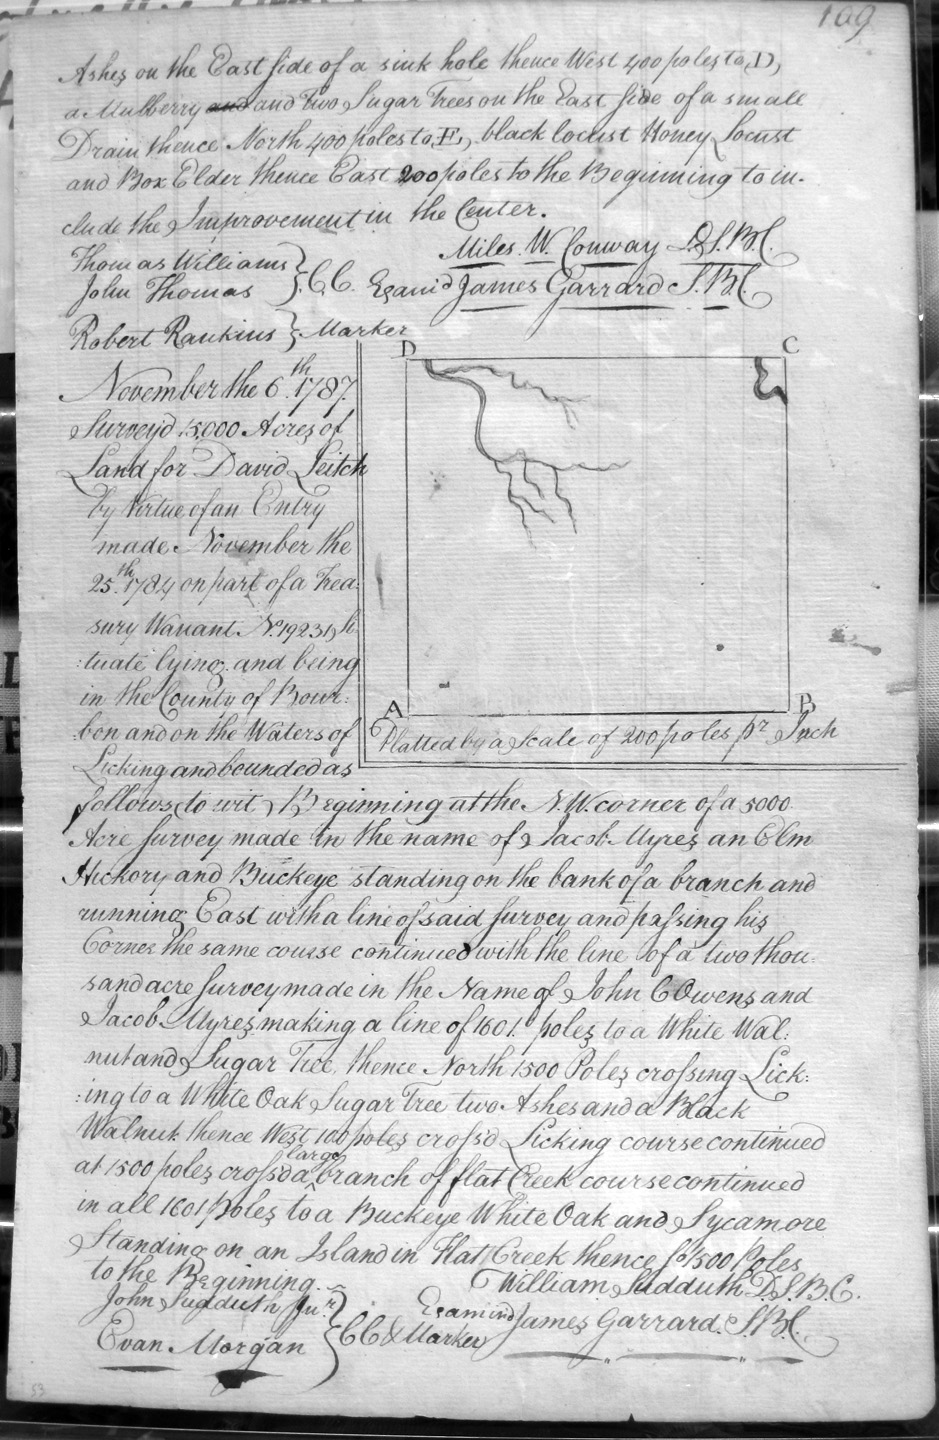 169
Ashes on the East side of a sink hole thence West 400 poles to D,
a Mulberry and and two Sugar Trees on the East side of a small
Drain thence North 400 poles to E, black locust Honey Locust
and Box Elder thence East 200 poles to the Beginning to in-
clude the Improvement in the Center.
Miles. W. Conway D.S.B.C.
Thomas Williams
John Thomas } C.C. Examd James Garrard S.B.C.
Robert Rankins } Marker
D C
November the 6th. 1787.
Survey'd 15,000 Acres of
Land for David Leitch
by Virtue of an Entry
made November the
25th. 1784 on part of a Trea-
sury Warrant No. 19231, si-
:tuate lying and being
in the County of Bour:
:bon and on the Waters of
Licking and bounded as
A B
Platted by a Scale of 200 poles pr. Inch
follows, to wit, Beginning at the N.W. corner of a 5000
Acre survey made in the name of Jacob Myres an Elm
Hickory and Buckeye standing on the bank of a branch and
running East with a line of said survey and passing his
Corner the same course continued with the line of a two thou-
sand acre survey made in the Name of John C Owens and
Jacob Myres making a line of 1601. poles to a White Wal:
nut and Sugar Tree, thence North 1500 Poles crossing Lick:
:ing to a White Oak Sugar Tree two Ashes and a Black
Walnut. thence West 100 poles cross'd Licking course continued
at 1500 poles cross'd a large branch of flat Creek course continued
in all 1601 poles to a Buckeye White Oak and Sycamore
Standing on an Island in Flat Creek thence So. 1500 Poles
to the Beginning. William Sudduth D.S.B.C.
John Sudduth Junr. Examind James Garrard. S.B.C.
Evan Morgan } CC & Marker
53